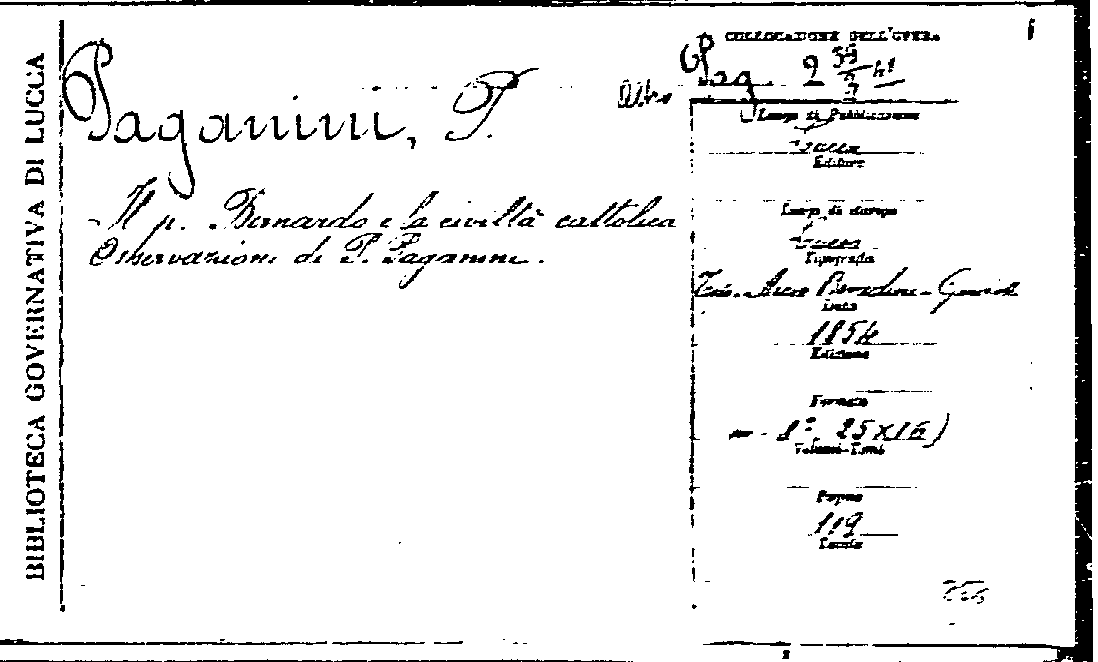 BIBLIOTECA GOVERNATIVA DI LUCCA
Paganini, P.
Il p. Bernardo e la civiltà cattolica
Osservazioni di P. Paganini.
COLLOCAZIONE DELL'OPERA
Pag. 2
Luogo di Pubblicazione
Lucca
Editore
Luogo di stampa
Lucca
Tipografia
Data
1854
Edizione
Formato
8° 25x16)
Volumi-Tomi
Pagine
119
Tavole